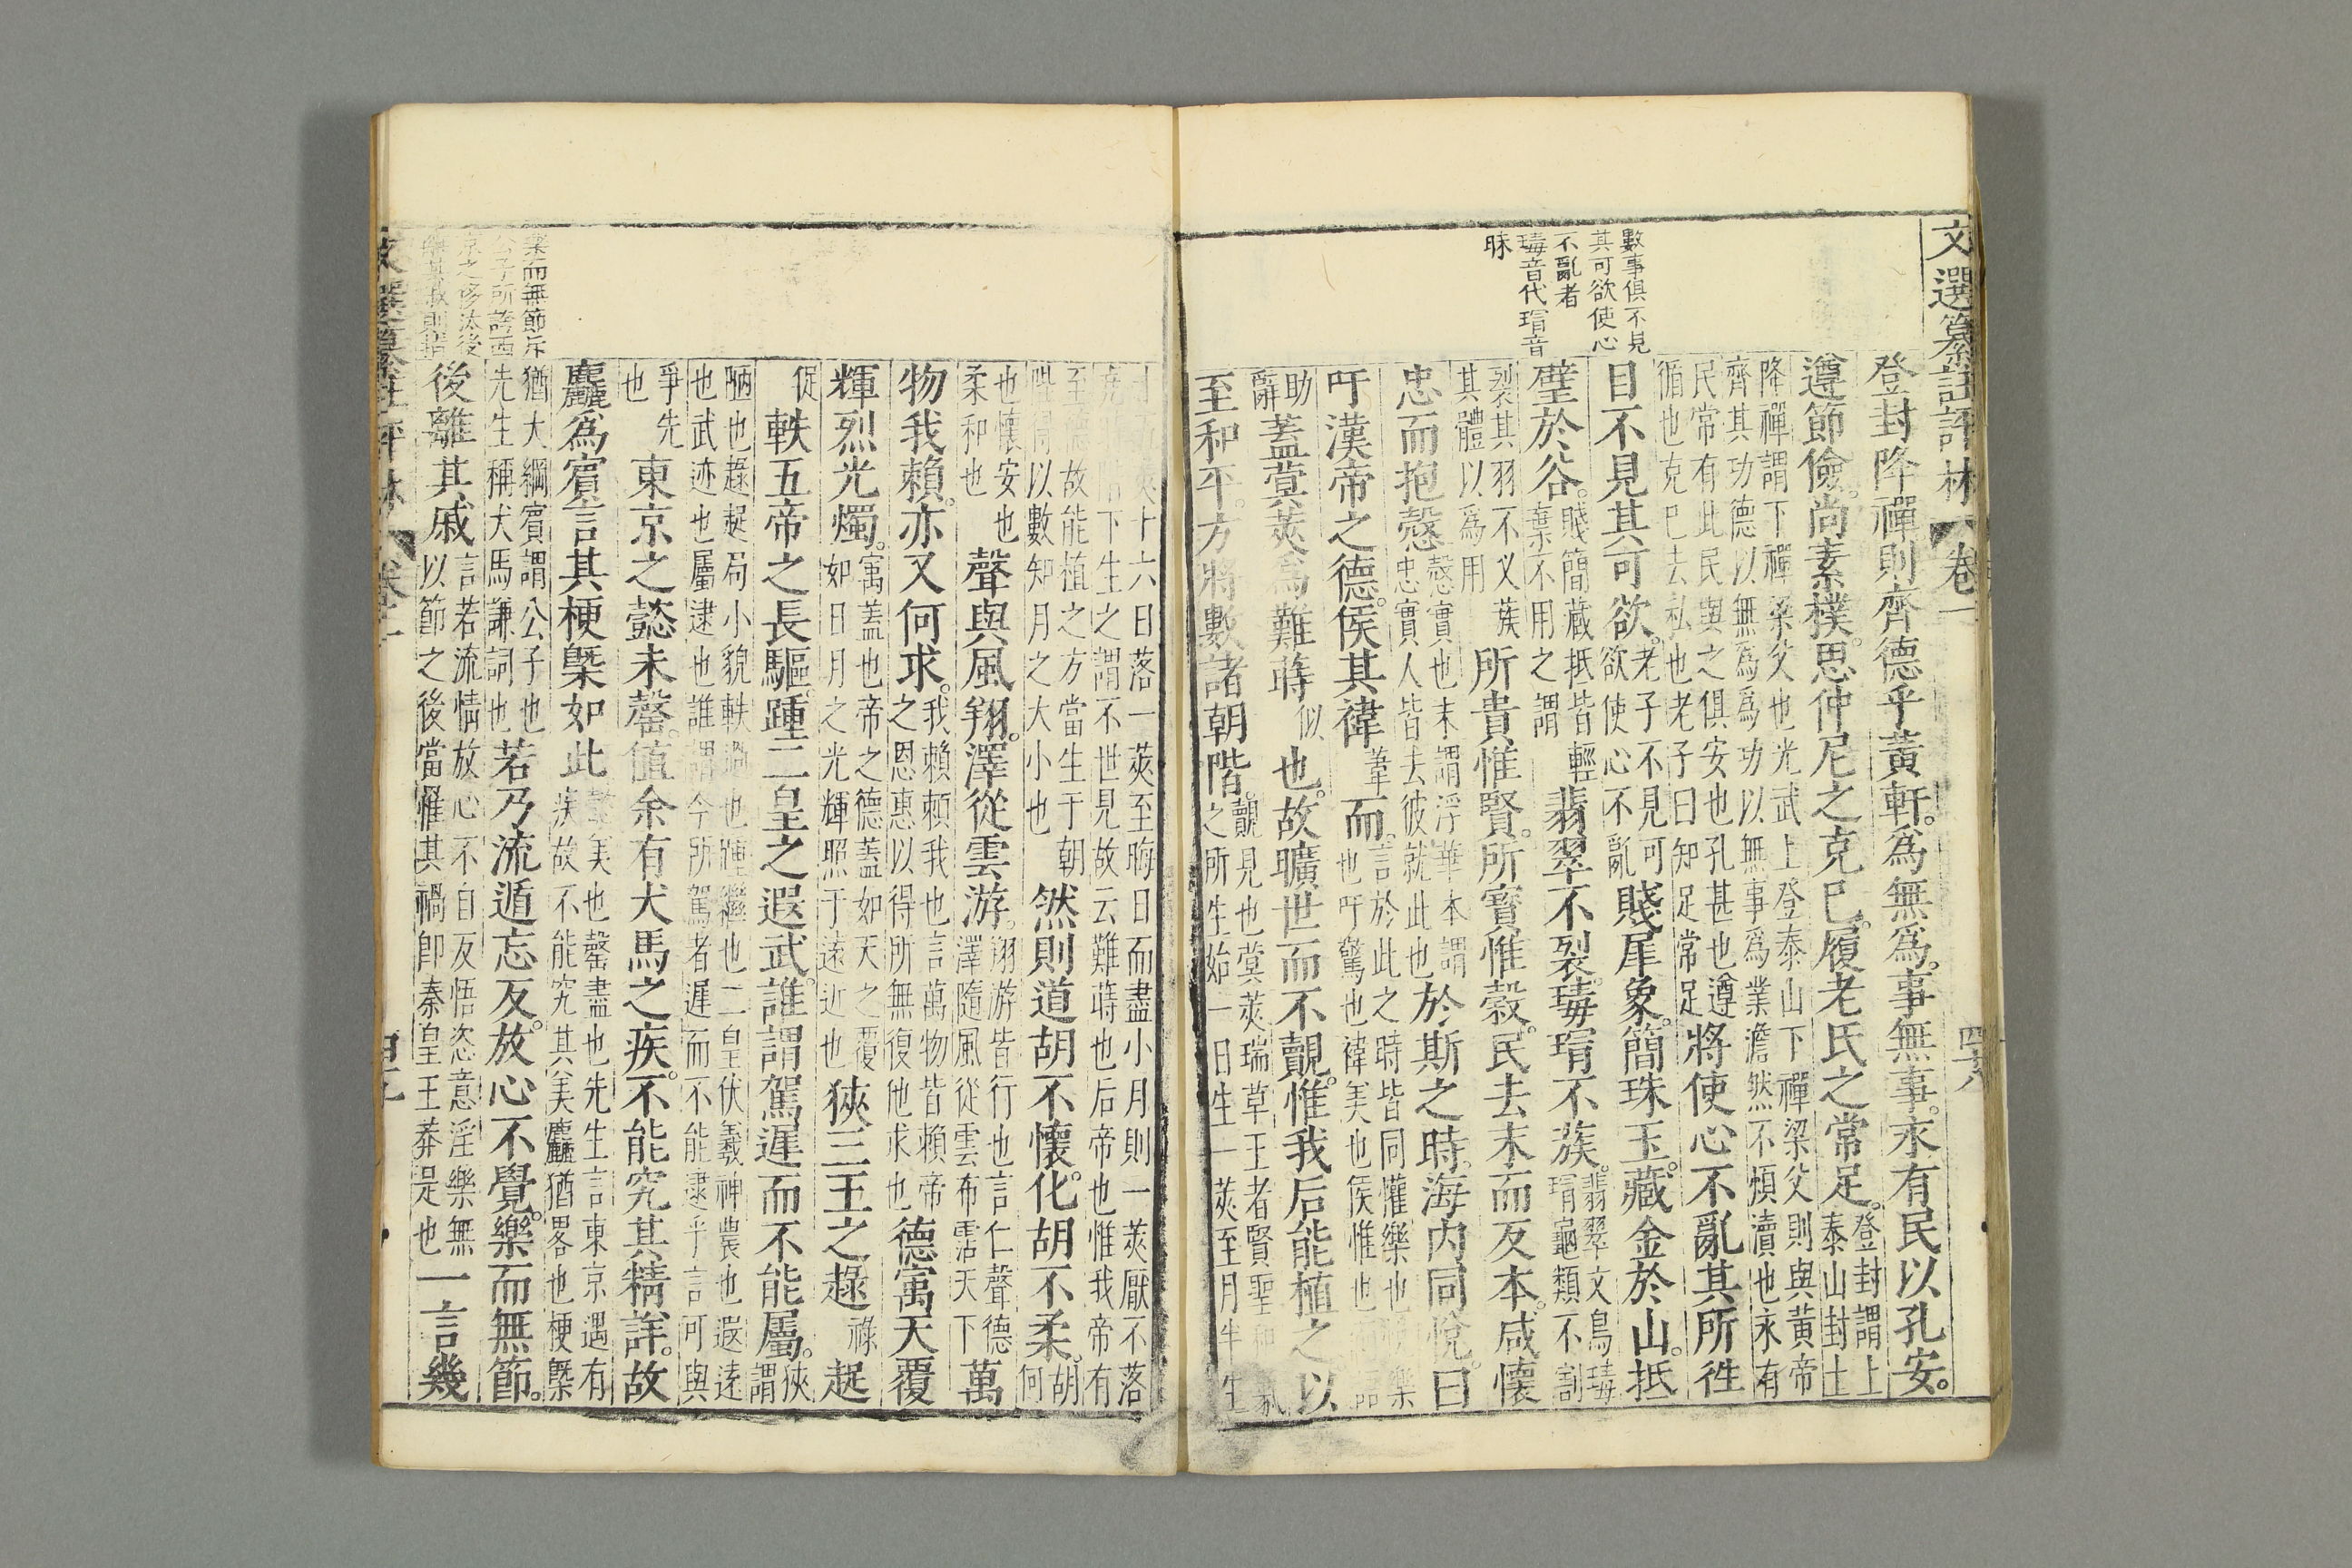 文選纂註評林 卷一 四六
數事俱不見
其可欲使心
不亂者
瑇音代瑁音
昧
登封降禪則齊德乎黃軒。爲無爲。事無事。永有民以孔安。
遵節儉。尚素樸。思仲尼之克己。履老氏之常足。登封謂上泰山封土
降禪謂下禪梁父也光武上登泰山下禪梁父則與黃帝
齊其功德以無爲爲功以無事爲業澹然不煩瀆也永有
民常有此民與之俱安也孔甚也遵循也克己去私也老子曰知足常足將使心不亂其所在
目不見其可欲。老子不見可欲使心不亂賤犀象。簡珠玉。藏金於山。抵
璧於谷。賤簡藏抵皆輕棄不用之謂翡翠不裂。瑇瑁不蔟。翡翠文鳥瑇瑁龜類不割
裂其羽不义蔟其體以爲用所貴惟賢。所寶惟穀。民去末而反本。咸懷
忠而抱愨愨實也末謂浮華本謂忠實人皆去彼就此也於斯之時。海内同悅。曰
吁漢帝之德。侯其禕葦而。言於此之時皆同懽樂也悅樂也吁驚也禕美也侯惟也語
助辭蓋蓂莢爲難蒔似也。故曠世而不覿。惟我后能植之以
至和平。方將數諸朝階。覿見也蓂莢瑞草王者賢聖和氣之所生始一日生一莢至月半生
莢十六日落一莢至晦日而盡小月則一莢厭不落
下生之謂不世見故云難蒔也后帝也惟我帝有
至德故能植之方當生于朝陛間以數知月之大小也然則道胡不懷。化胡不柔。胡何
也懷安也柔和也聲與風翔。澤從雲游。翔游皆行也言仁聲德澤隨風從雲布霑天下萬
物我賴。亦又何求。我賴賴我也言萬物皆賴帝之恩惠以得所無復他求也德寓天覆
輝烈光燭。寓蓋也帝之德蓋如天之覆如日月之光輝照于遠近也狹三王之趢祿起
促軼五帝之長驅。踵二皇之遐武。誰謂駕遲而不能屬。狹謂
陋也趢起局小貌軼過也踵繼也二皇伏羲神農也遐遠
也武迹也屬逮也誰謂今所駕者遲而不能逮乎言可與
爭先也東京之懿未罄。值余有犬馬之疾。不能究其精詳。故
麤爲賓言其梗槩如此懿美也罄盡也先生言東京遇有疾故不能究其美麤猶畧也梗槩
猶大綱賓謂公子也先生稱犬馬謙詞也若乃流遁忘反。放心不覺。樂而無節。
後離其戚言若流情放心不自反悟恣意淫樂無以節之後當惟其禍卽秦皇王莽是也一言幾
樂而無節斥
公子所誇西
京之侈汰後
離其戚則指
文選纂註評林 卷一